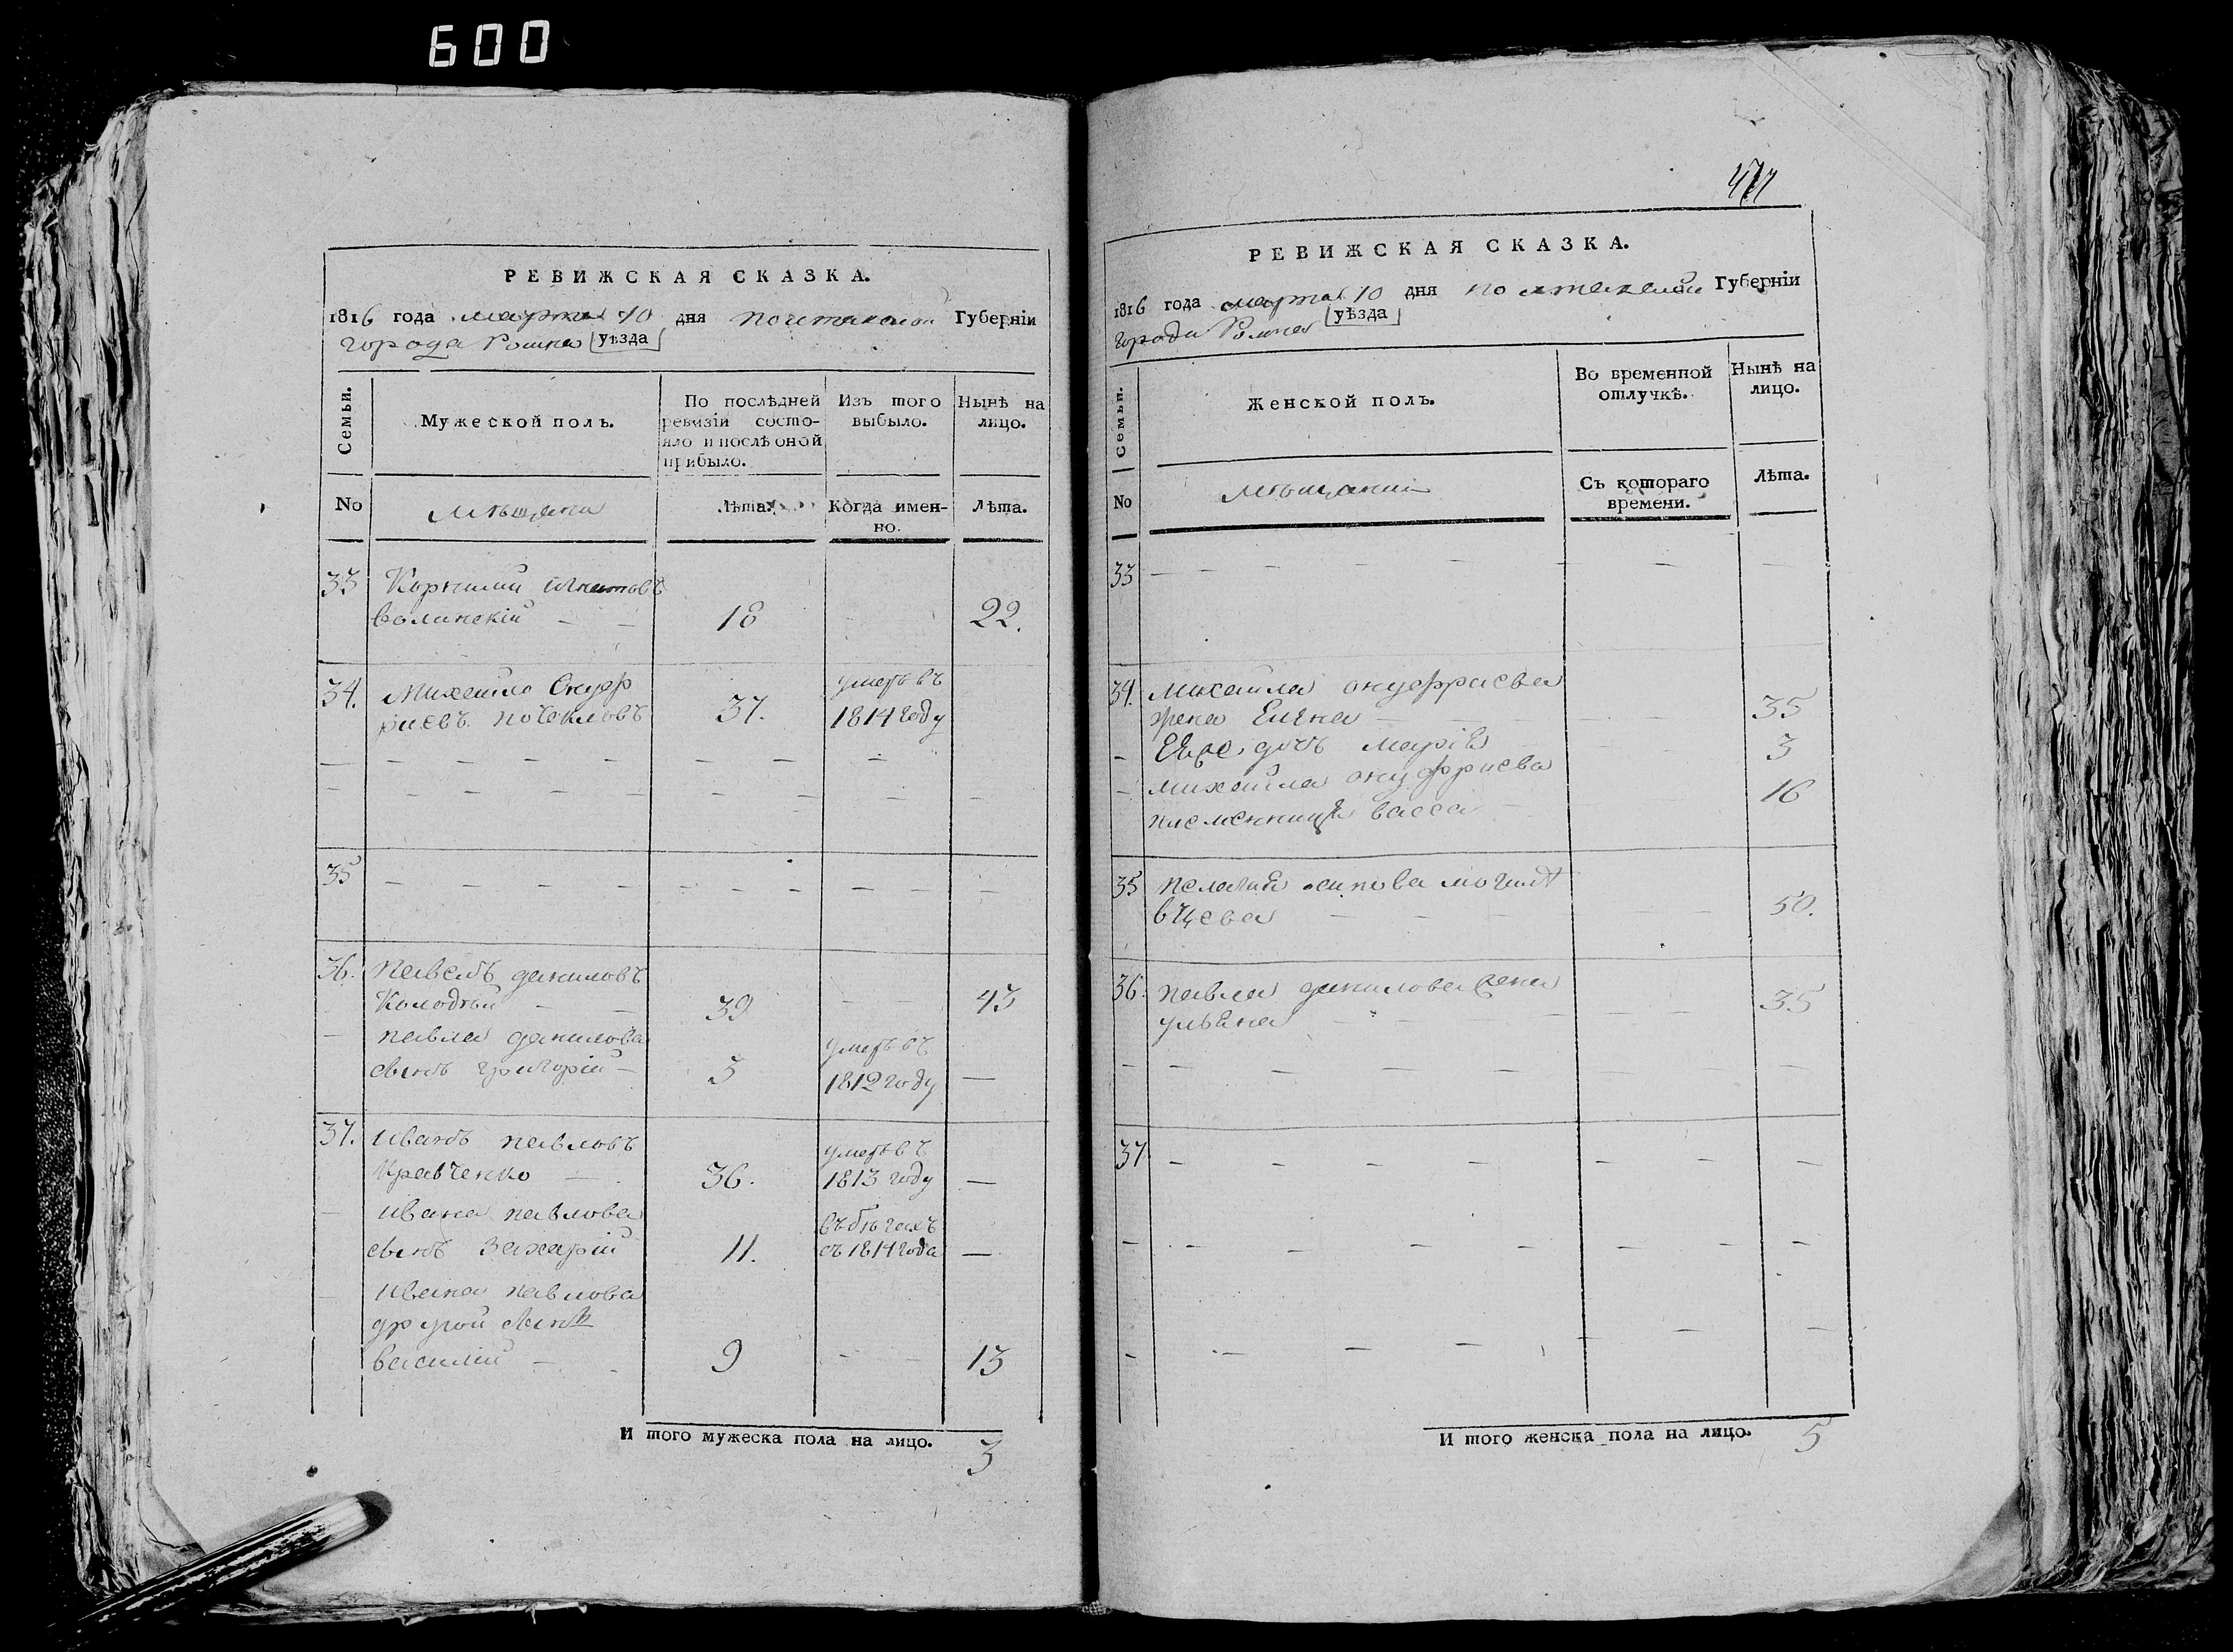 600
РЕВИЖСКАЯ СКАЗКА.
1816 года марта 10 дня полтавской Губерніи
города Ромна уѣзда
Семьи.
Мужеской полъ.
По послѣдней ревизіи состо-
яло и послѣ оной
прибыло.
Изъ того
выбыло.
Нынѣ на
лицо.
No
мѣщани
Лѣта.
Когда имен-
но.
Лѣта.
33 Корнилий Игнатовъ
волинскій — — 18 — 22.
34. Михайло Онуф
риевъ 37. умеръ въ
1814 году
35
36. Павелъ даниловъ
Колодѣй — 39 — 43
павла данилова
сынъ григорій — 5 умеръ въ
1812 году —
37. иванъ павловъ
Кравченко — 36. умеръ въ
1813 году —
ивана павлова
сынъ Захарій 11. въ бѣгахъ
съ 1814 года —
ивана павлова
другой сынъ
василій — 9 — — 13
И того мужеска пола на лицо. 3
477
РЕВИЖСКАЯ СКАЗКА.
1816 года марта 10 дня полтавской Губерніи
города Ромна уѣзда
Семьи.
Женской полъ.
Во временной
отлучкѣ.
Нынѣ на
лицо.
No
мѣщанки
Съ котораго
времени.
Лѣта.
33
34. михайла онуфриева
жена Елена — 35
Ее дочь марія 3
михайла онуфриева 16
племенница васса
35 пелагия осипова могилѣ
вцева — — — 50.
36. павла данилова жена
ульяна — 35
37
И того женска пола на лицо. 5